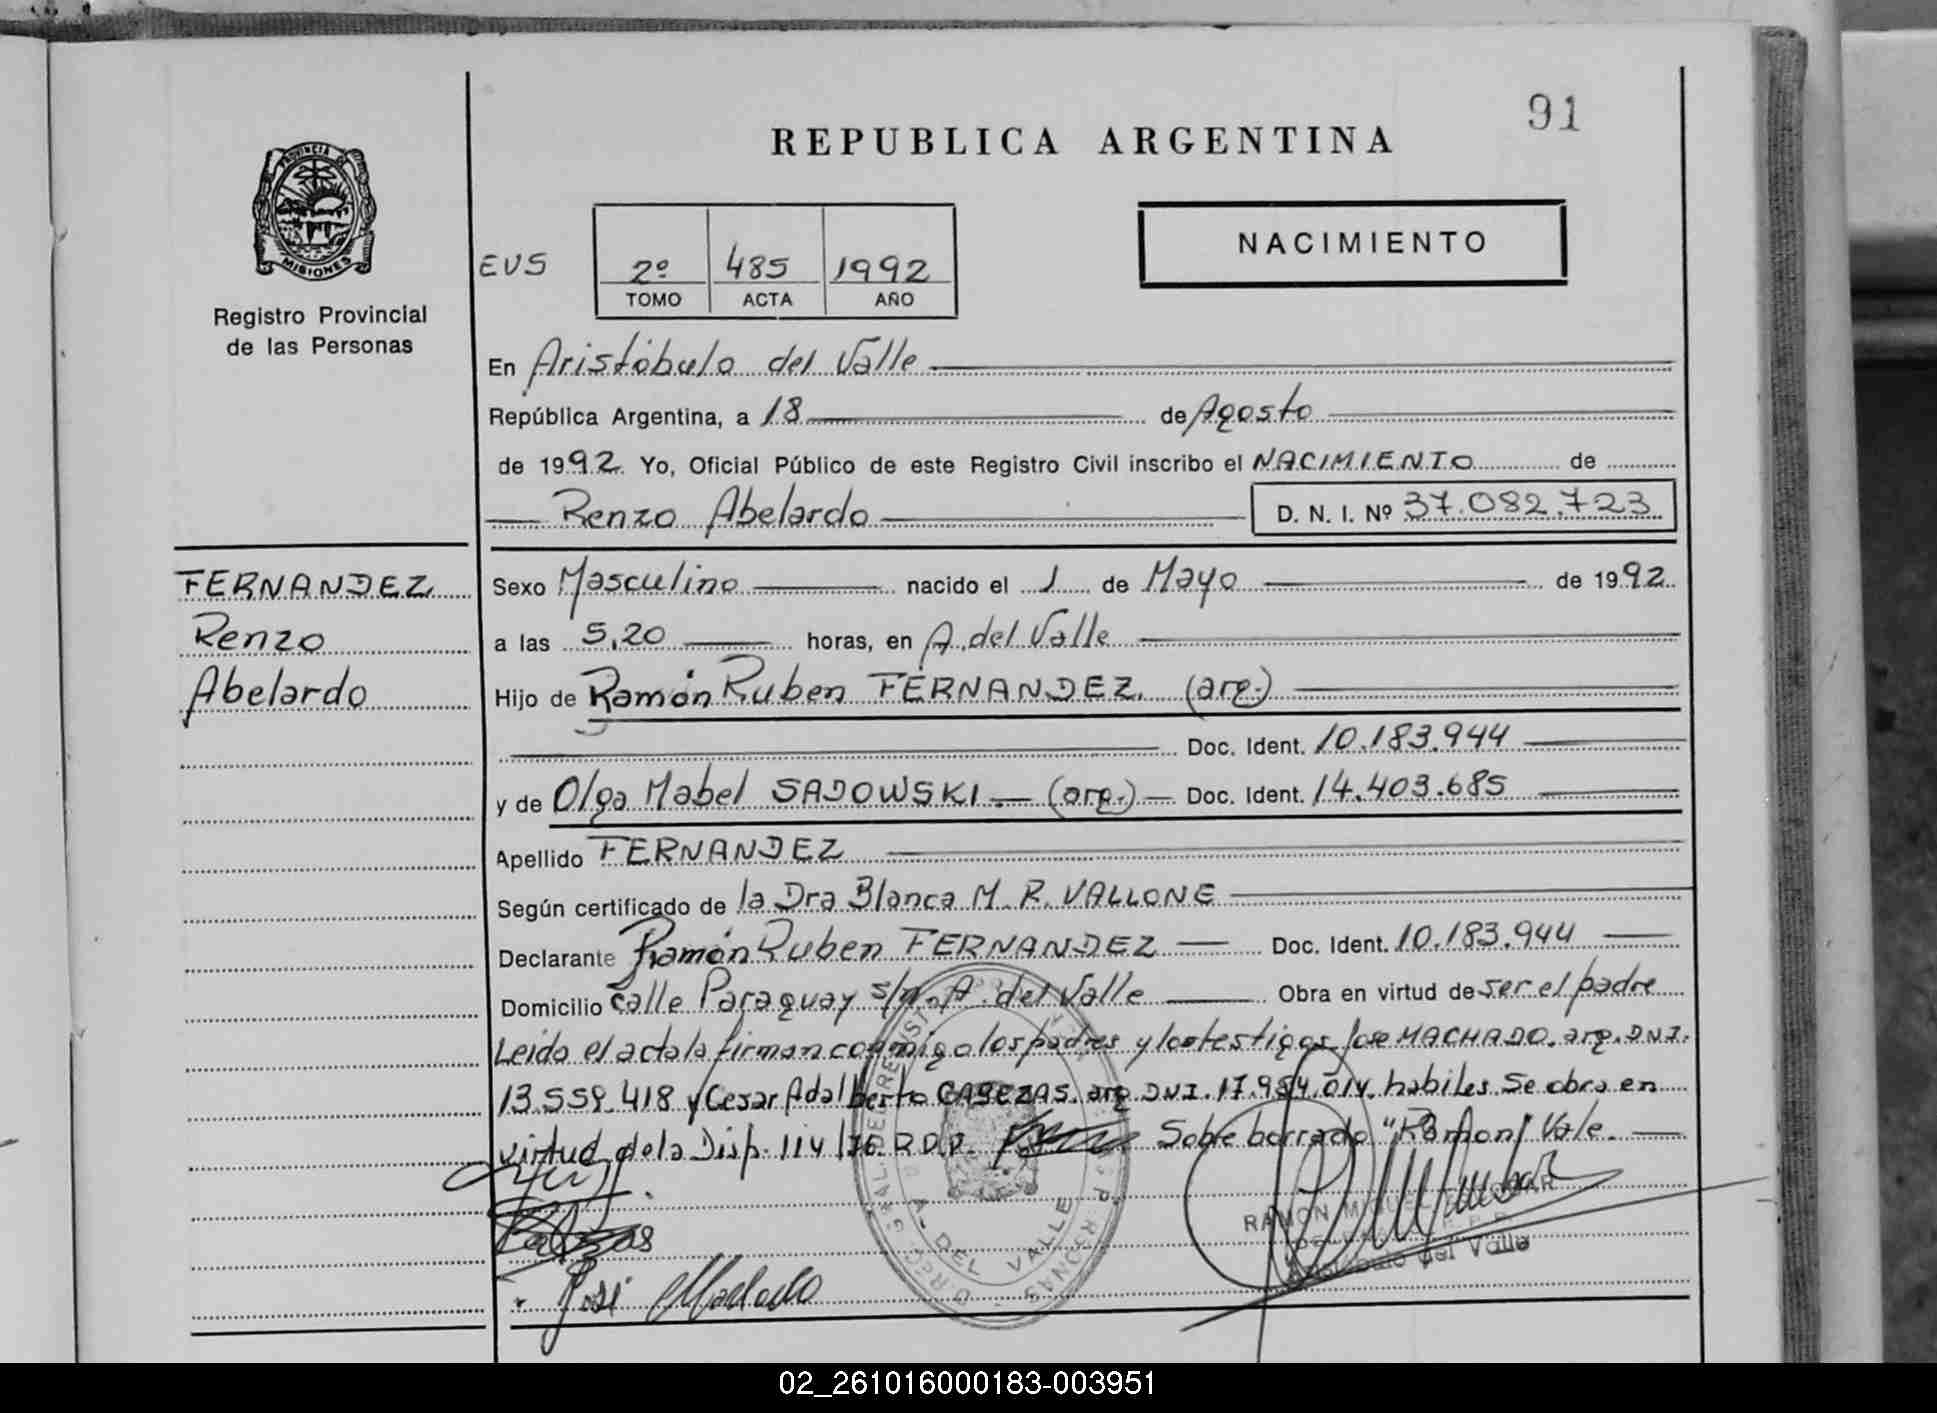 91
REPUBLICA ARGENTINA
PROVINCIA DE
MISIONES
Registro Provincial
de las Personas
NACIMIENTO
EUS
2º 485 1992
TOMO ACTA AÑO
En Aristóbulo del Valle
República Argentina, a 18 de Agosto
de 1992. Yo, Oficial Público de este Registro Civil inscribo el NACIMIENTO de
Renzo Abelardo D. N. I. Nº 37.082.723
FERNANDEZ
Renzo
Abelardo
Sexo Masculino nacido el 1 de Mayo de 1992
a las 5,20 horas, en A. del Valle
Hijo de Ramón Ruben FERNANDEZ. (arg.)
Doc. Ident. 10.183.944
y de Olga Mabel SADOWSKI.- (arg.) - Doc. Ident. 14.403.685
Apellido FERNANDEZ
Según certificado de la Dra Blanca M. R. VALLONE
Declarante Ramón Ruben FERNANDEZ - Doc. Ident. 10.183.944
Domicilio calle Paraguay s/n. A. del Valle Obra en virtud de ser el padre
Leida el acta la firman conmigo los padres y los testigos Jose MACHADO. arg. DNI.
13.559.418 y Cesar Adalberto CABEZAS. arg DNI. 17.954.014. habiles. Se obra en
virtud de la Disp. 114 R.D.P. Sobre borrado "Ramon" Vale.
A. DEL VALLE
RAMON MIGUEL
Aristobulo del Valle
José Machado
02_261016000183-003951